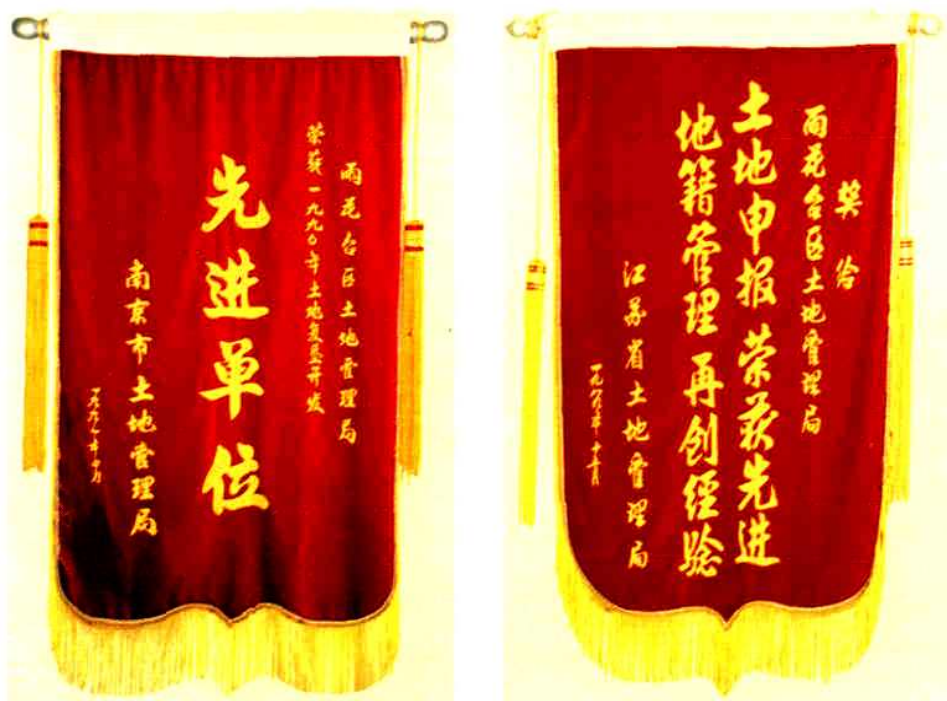 雨花台区土地管理局
荣获一九九〇年土地复垦开发
先进单位
南京市土地管理局
奖给
雨花台区土地管理局
土地申报 荣获先进
地籍管理 再创经验
江苏省土地管理局